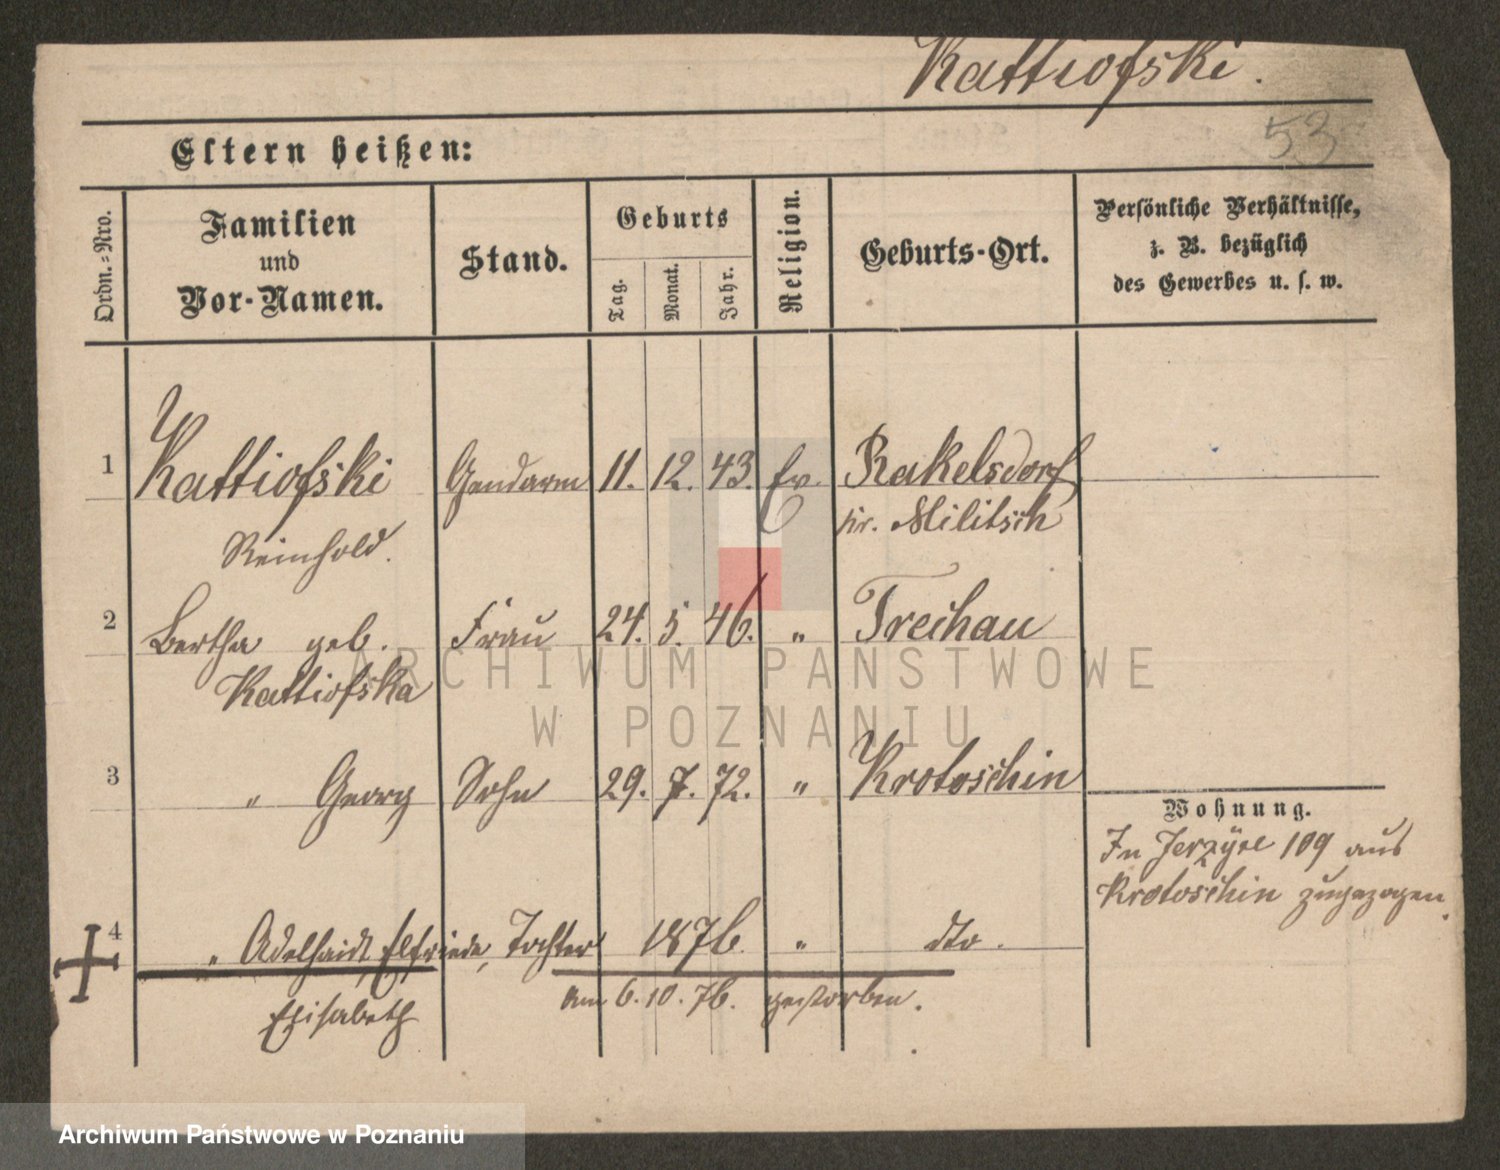 Kattiofski.
53
Eltern heißen:
Ordn.-Nro.
Familien
und
Vor-Namen.
Stand.
Geburts
Tag.
Monat.
Jahr.
Religion.
Geburts-Ort.
Persönliche Verhältnisse,
z. B. bezüglich
des Gewerbes u. s. w.
1 Kattiofski Gendarm 11. 12. 43. Ev. Rakelsdorf
Reinhold. kr. Militsch
2 Bertha geb. Frau 24. 5. 46. " Trechau
Kattiofska
3 " Georg Sohn 29. 7. 72. " Krotoschin
Wohnung.
In Jerzyce 109 aus
Krotoschin zugezogen.
4 " Adelhaidt Elfriede, Tochter 1876 " dto.
Elisabeth am 6. 10. 76. gestorben.
ARCHIWUM PAŃSTWOWE
W POZNANIU
Archiwum Państwowe w Poznaniu